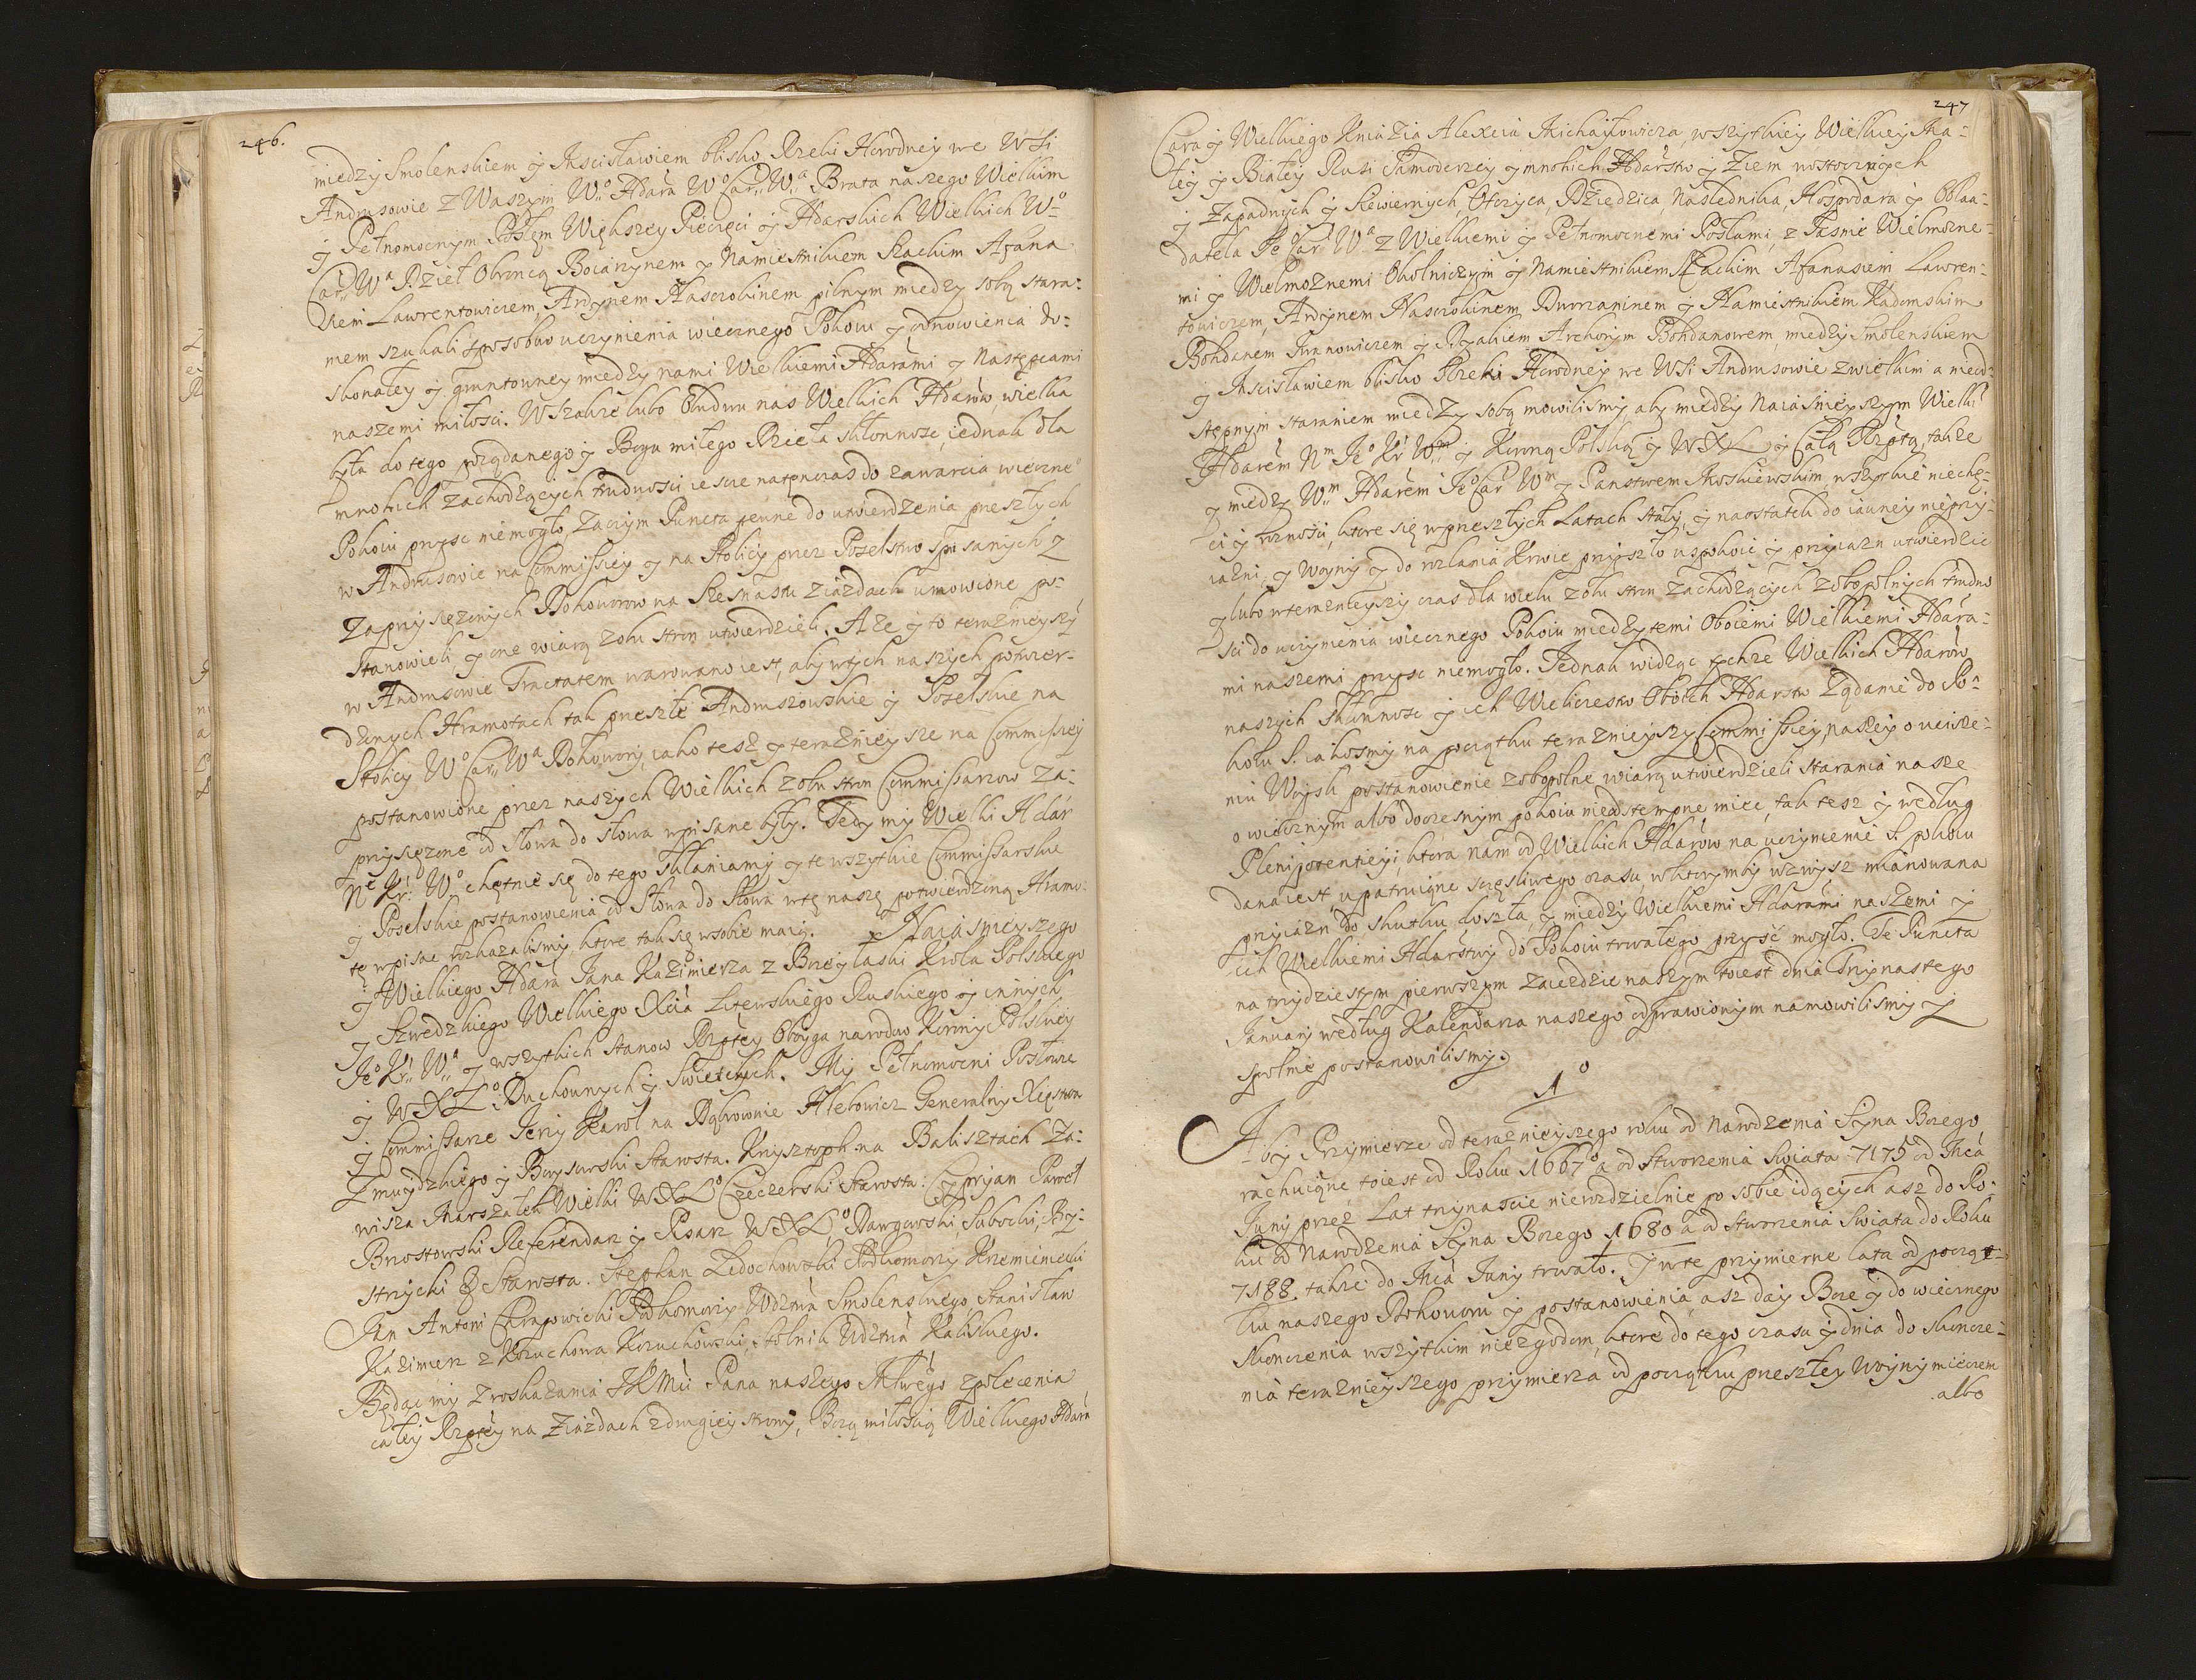 246.
między Smolenskiem y Mscisławiem blisko Rzeki Horodney we WSi
Andrusowie z Waszym Wo. Hdara Wo Car. Wa. Brata naszego Wielkim
y Pełnomocnym Posłem Większey Pieczęci y Hdarskich Wielkich Wo
Car. Wa Dzieł Obroncą Boiarzynem y Namiestnikiem Szackim Afana
siem Lawrentowiczem, Ardynem Nasczokinem pilnym między sobą stara:
niem szukali sposobow uczynienia wiecznego Pokoiu y odnowienia do:
skonałey y gruntowney między nami Wielkiemi Hdarami y Następcami
naszemi miłosci. Wszakze lubo Obudwu nas Wielkich Hdarow, wielka
była do tego pożądanego y Bogu miłego Dzieła skłonnosc, iednak dla
mnohich zachodzących trudnosci iescze natenczas do zawarcia wieczneo
Pokoiu przysc niemogło, zaczym Puncta pewne do utwierdzenia przeszłych
w Andrusowie na Commissiey y na Stolicy przez Poselstwo spisanych y
zaprzysięzonych Dohoworow na Szesnastu Ziazdach umowione po:
stanowieli, y one wiarą z obu stron utwierdzieli. A że y to terazniejszy
w Andrusowie Tractatem warowano iest, aby w tych naszych potwier:
dzonych Hramotach tak przeszłe Andruszowskie y Poselskie na
Stolicy Wo Car. Wa Dohowory, iako tesz y teraznieysze na Commissiey
postanowione przez naszych Wielkich z obu stron Commissarzow za:
przysięzone od słowa do słowa wpisane były. Tedy my Wielki Hdar
Ne Kr. Wo chętnie się do tego skłaniamy y te wszytkie Commissarskie
y Poselskie postanowienia od Słowa do Słowa w tę naszę potwierdzoną Hramo:
tę wpisac rozkazalismy, ktore tak się w sobie maią. Naiasnieyszego
y Wielkiego Hdara Jana Kazimierza z Bożey łaski Krola Polskiego
y Szwedzkiego Wielkiego Xcia Litewskiego Ruskiego y innych
Jeo Kr. Wa. y wszytkich stanow Rzptey Oboyga narodow Korony Polskiey
y WXLo Duchownych y Swietckych. My Pełnomocni Posłowie
y Commissarze Jerzy Karol na Dąbrownie Hlebowicz Generalny Xięstwa
Zmuydzkiego y Borysowski Starosta. Krysztoph na Baksztach Za:
wisza Marszałek Wielki WXLo Czeczerski Starosta: Cyprian Paweł
Brzostowski Referendarz y Pisarz WXLo, Dawgowski, Subocki, By:
strzycki & Starosta. Stephan Ledochowski Podkomorzy Krzemieniecki
Jan Antoni Chrapowicki Podkomorzy Wdztwa Smolenskiego, Stanisław
Kazimierz z Kożuchowa Kożuchowski, Stolnik Wdztwa Kaliskiego.
Będąc my z roskazania JKMci Pana naszego Młwego z polecenia
całey Rzptey na Ziazdach z drugiey strony, Bożą miłoscią Wielkiego Hdara
247
Cara y Wielkiego Kniazia Alexeia Michajłowicza, wszytkiey Wielkiey Ma:
łey y Białey Rusi Samoderzcy y mnohich Hdarstw y Ziem wostocznych
y Zapadnych y Siewiernych, Otczyca, Dziedzica, Naslednika, Hospodara y Obła:
datela Jeo Car. Wa z Wielkiemi y Pełnomocnemi Posłami, z Jasnie Wielmożne:
mi y Wielmożnemi Okolniczym y Namiestnikiem Szackim Afanasiem Lawren:
towiczem, Ardynem Nasczokinem, Dworzaninem y Namiestnikiem Kadomskim
Bohdanem Iwanowiczem y Dyakiem Archorym Bohdanowem między Smolenskiem
y Mscisławiem blisko Rzeki Horodney we WSi Andrusowie z wielkim a nied:
stępnym staraniem między sobą mowilismy, aby między Naiasnieyszym Wielki
Hdarem Nm Jeo Kr. Wm. y Koroną Polską y WXL. y Całą Rzptą, także
y między Wm. Hdarem Jeo Car. Wm. y Panstwem Moskiewskim wszytkie niechę:
ci y roznosci, ktore się w przeszłych Latach stały, y naostatek do iawney nieprzy:
iazni, y Woyny y do rozlania Krwie przyszło uspokoic y przyiazn utwierdzic
y lubo w teraznieyszy czas dla wielu z obu stron zachodzących z obopolnych trudno
sci do uczynienia wiecznego Pokoiu między temi Oboiemi Wielkiemi Hdara:
mi naszemi przysc niemogło. Jednak widząc tychże Wielkich Hdarow
naszych skłonnosc y ich Wieliczestw Oboich Hdarstw żądanie do Po:
koiu S. iakosmy na początku teraznieyszey Commissiey naszey o ucisze:
niu Woysk postanowienie z obopolne wiarą utwierdzieli starania nasze
o wiecznym albo doczesnym pokoiu nieodstempne miec, tak tesz y według
Plenipotentiey, ktora nam od Wielkich Hdarow na uczynienie S. pokoiu
dana iest, upatruiąc szczęsliwego czasu, w ktorymby wzwysz mianowana
przyiazn do skutku doszła, y między Wielkiemi Hdarami naszemi y
ich Wielkiemi Hdarstwy do Pokoiu trwałego przysć mogło. Te Puncta
na trzydziestym pierwszym Zieździe naszym toiest dnia Trzynastego
January według Kalendarza naszego odprawionym namowilismy y
społnie postanowilismy.
1o
Aby Przymierze od teraznieyszego roku od Narodzenia Syna Bozego
rachuiąc toiest od Roku 1667o a od Stworzenia Swiata 7175 od Mca
Juny przez Lat trzynascie nierozdzielnie po sobie idących asz do Ro:
ku od Narodzenia Syna Bozego 1680 a od stworzenia Swiata do Roku
7188. także do Mca Juny trwało. Y w te przymierne lata od począt:
ku naszego Dohoworu y postanowienia, asz day Boze y do wiecznego
skonczenia wszytkim niezgodom, ktore do tego czasu y dnia do skoncze:
nia teraznieyszego przymierza od początku przeszłey Woyny mieczem
albo